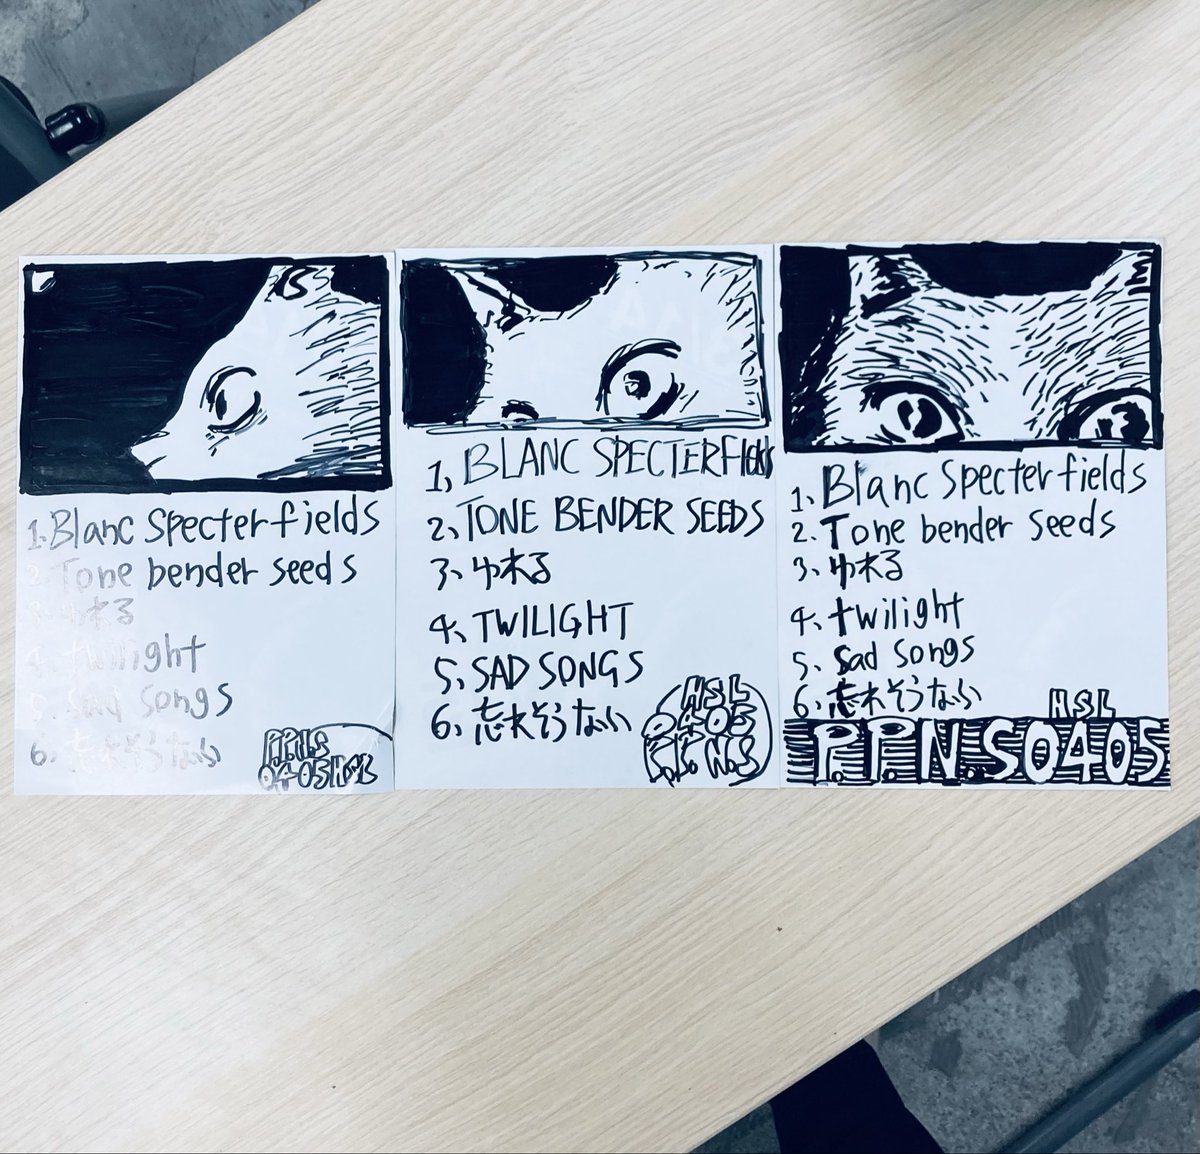 1. Blanc Specter fields
2. Tone bender seeds
3. ゆれる
4. twilight
5. Sad songs
6. 忘れそうなふ
P.P.N.S
0405 HSL
1、BLANC SPECTER FIELDS
2、TONE BENDER SEEDS
3、ゆれる
4、TWILIGHT
5、SAD SONGS
6、忘れそうなふ
HSL
0405
P.P.N.S
1. Blanc Specter fields
2. Tone bender seeds
3、ゆれる
4. twilight
5. Sad songs
6. 忘れそうなふ
HSL
P.P.N.S0405